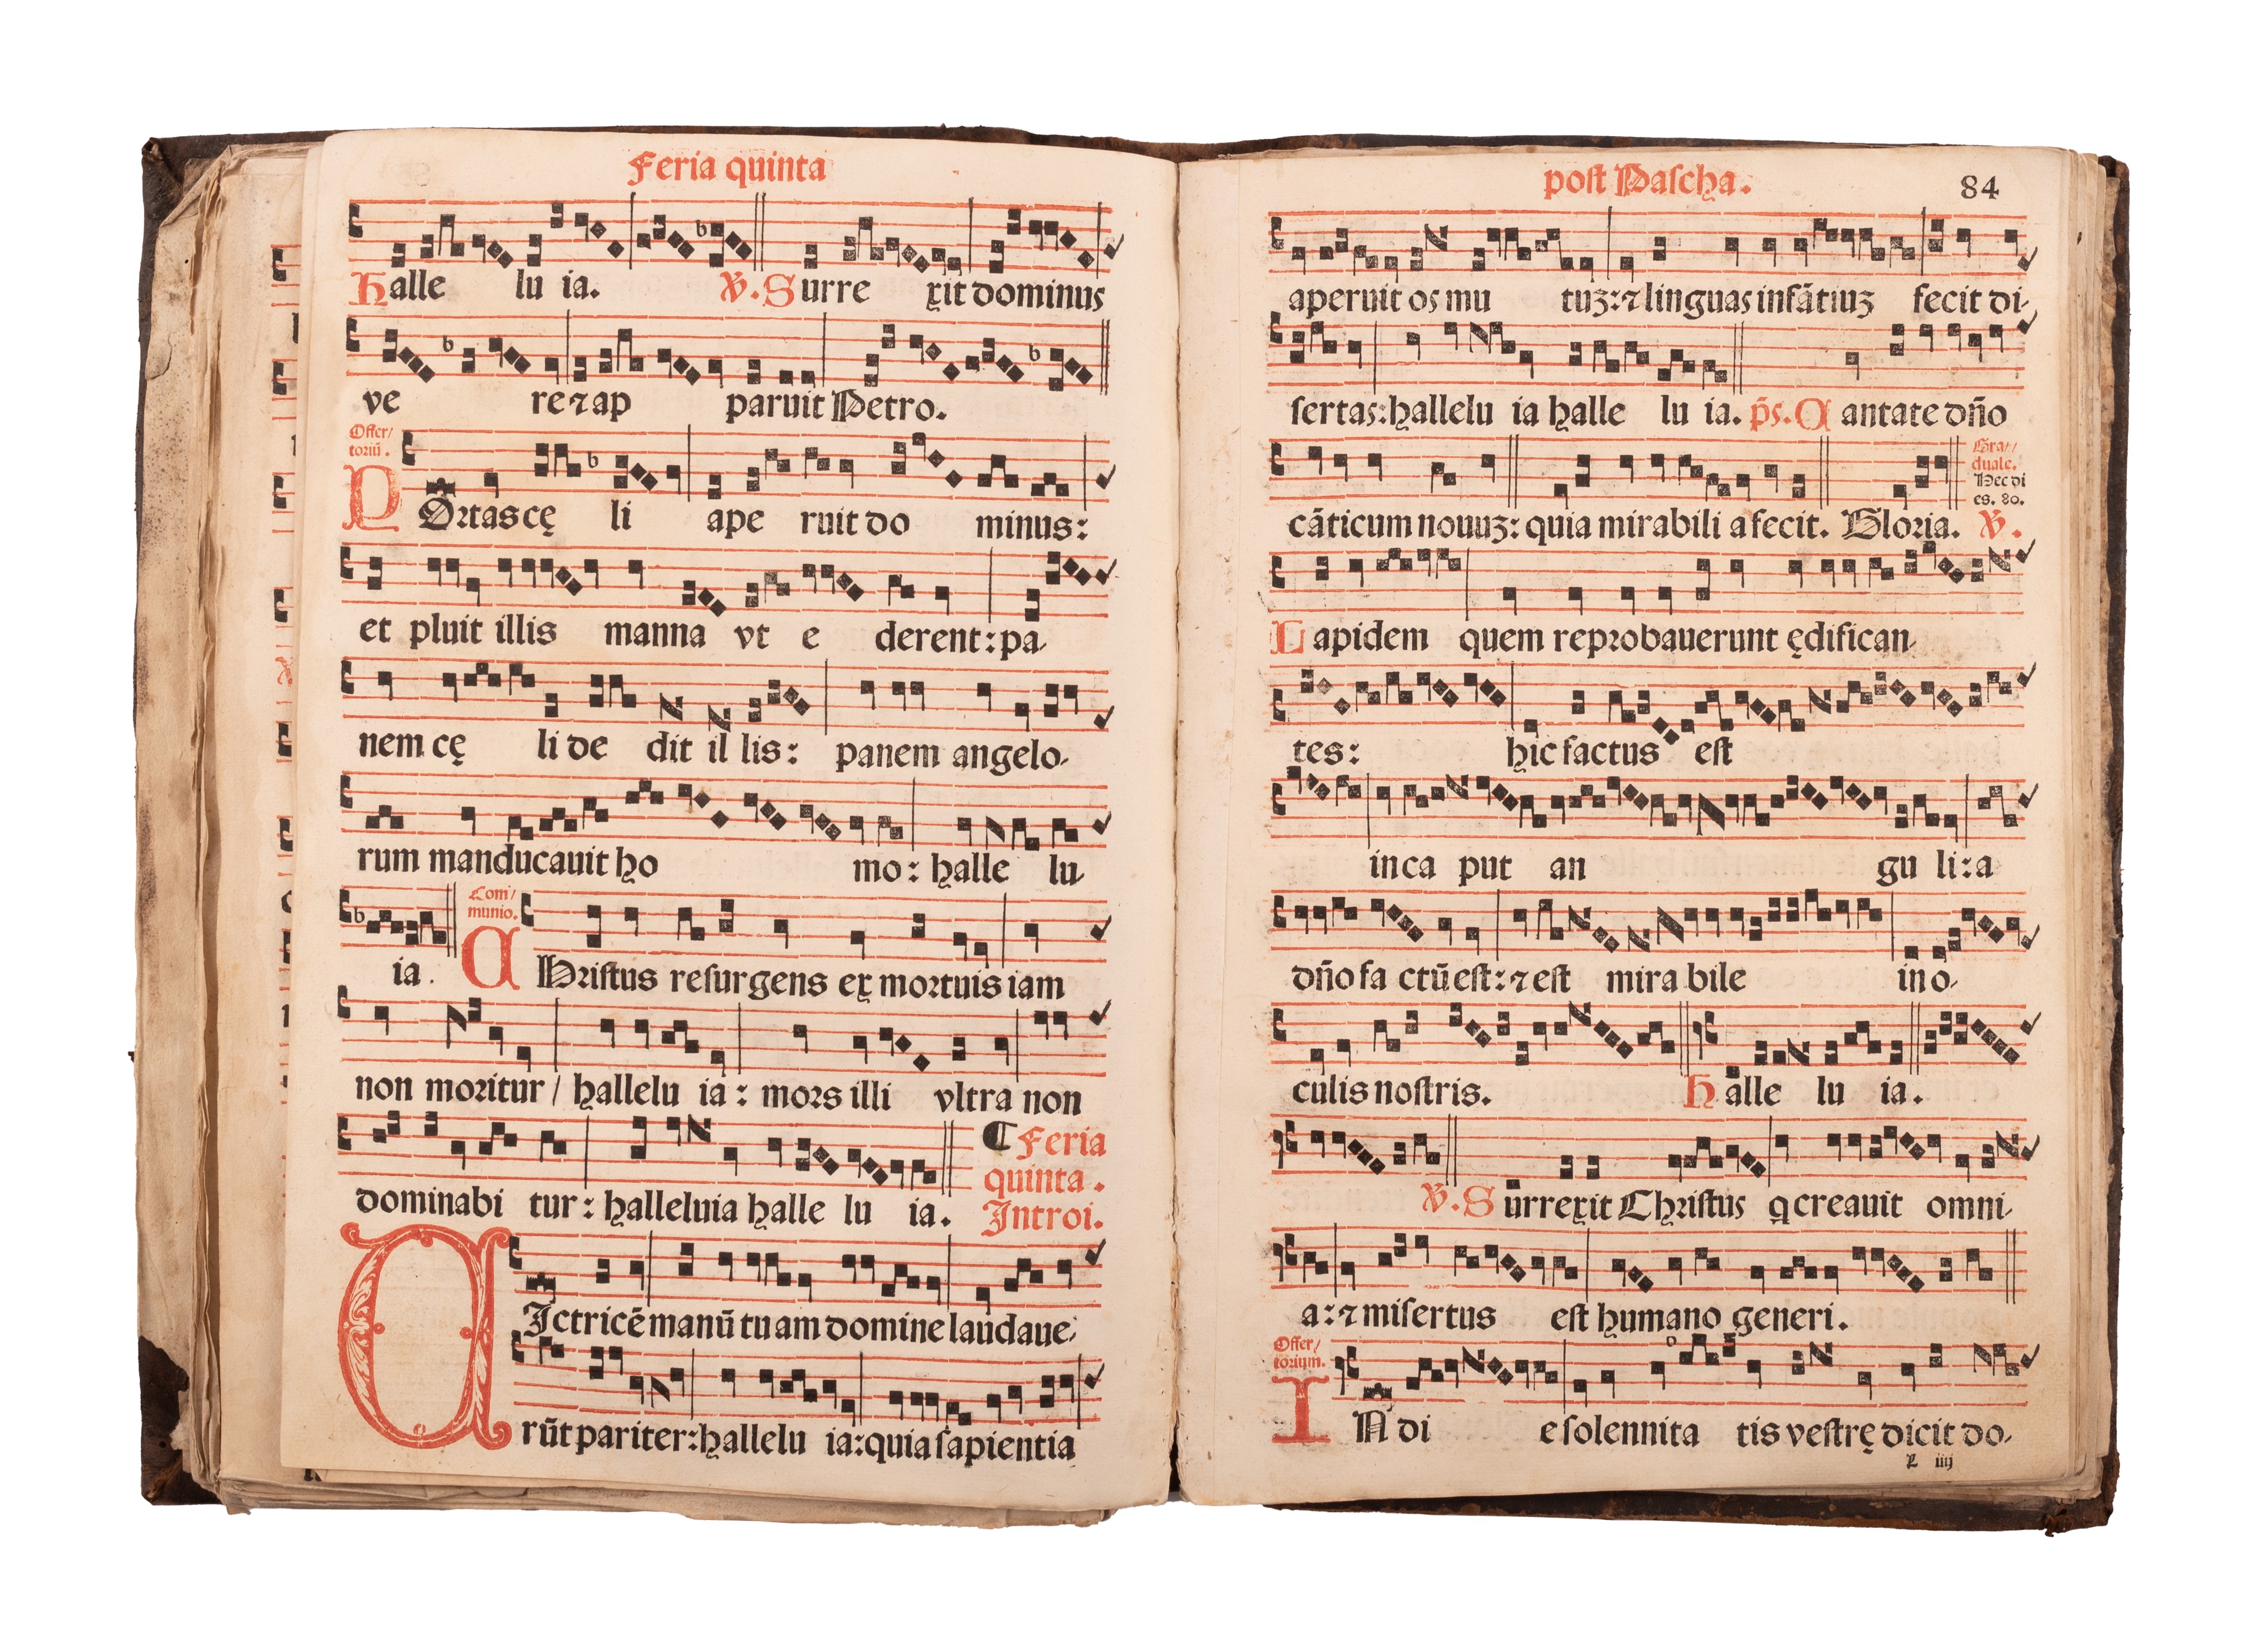 Feria quinta
Halle lu ia. ℣. Surre xit dominus
ve re ⁊ ap paruit Petro.
Offer/
toriũ.
POrtas cę li ape ruit do minus:
et pluit illis manna vt e derent: pa-
nem cę li de dit il lis: panem angelo-
rum manducauit ho mo: halle lu-
ia.
Com/
munio.
CHristus resurgens ex mortuis iam
non moritur / hallelu ia: mors illi vltra non
dominabi tur: halleluia halle lu ia.
¶ Feria
quinta.
Introi.
VIctricẽ manũ tu am domine laudaue-
rũt pariter: hallelu ia: quia sapientia
post Pascha. 84
aperuit os mu tuꝫ: ⁊ linguas infãtiuꝫ fecit di-
sertas: hallelu ia halle lu ia. p̃s. Cantate dño
cãticum nouuꝫ: quia mirabili a fecit. Gloria. ℣.
Gra/
duale.
Hec di
es. 80.
Lapidem quem reprobauerunt ędifican-
tes: hic factus est
in ca put an gu li: a
dño fa ctũ est: ⁊ est mira bile in o-
culis nostris. Halle lu ia.
℣. Surrexit Christus q creauit omni-
a: ⁊ misertus est humano generi.
Offer/
torium.
IN di e solennita tis vestrę dicit do-
L iiij